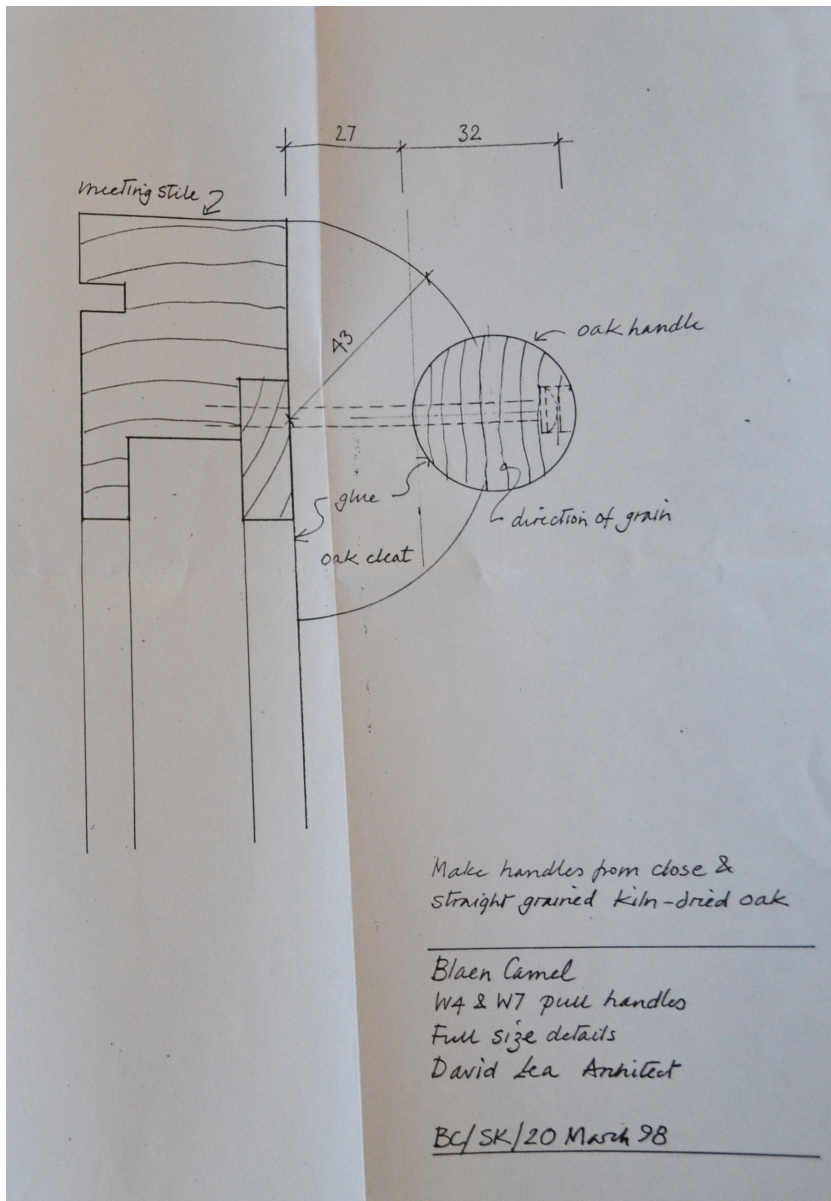 27
32
meeting stile
oak handle
43
glue
direction of grain
oak cleat
Make handles from close &
straight grained kiln-dried oak
Blaen Camel
W4 & W7 pull handles
Full size details
David Lea Architect
BC/SK/20 March 98